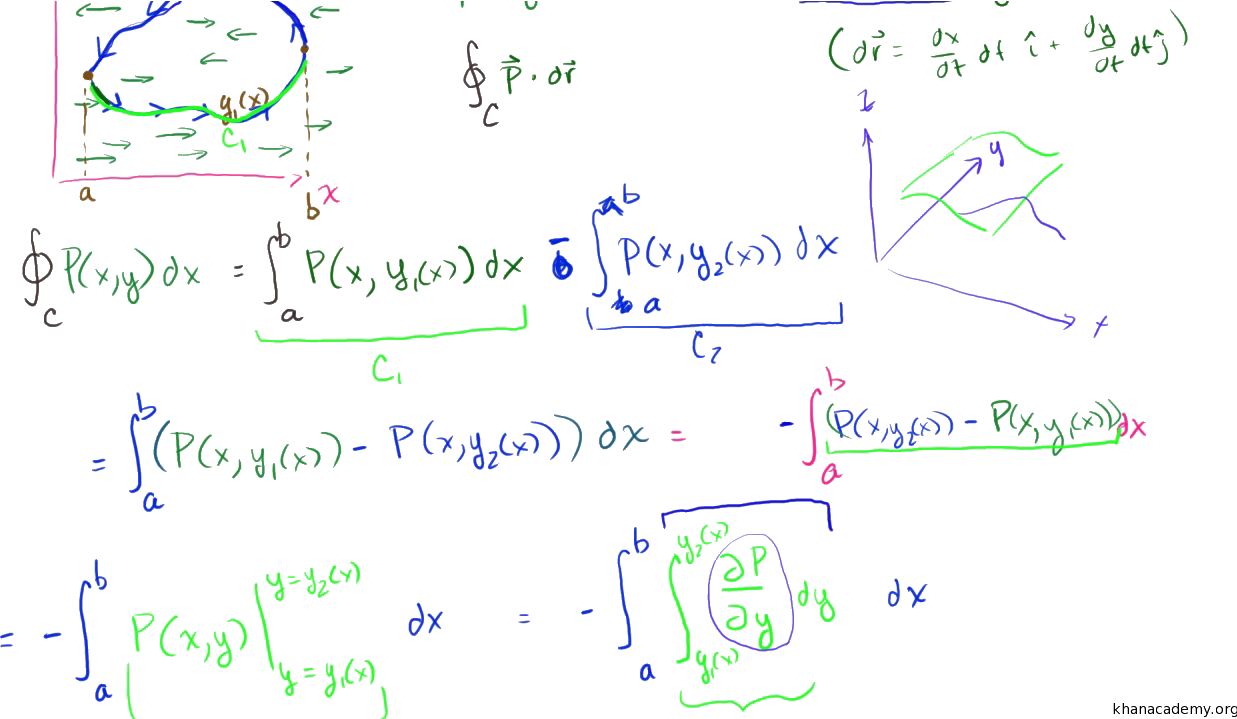 (d\vec{r} = \frac{dx}{dt} dt \hat{i} + \frac{dy}{dt} dt \hat{j})
\oint_C \vec{P} \cdot d\vec{r}
y₁(x)
C₁
a
b
x
z
y
x
\oint_C P(x,y) dx = \int_a^b P(x, y₁(x)) dx - \int_a^b P(x, y₂(x)) dx
C₁
C₂
= \int_a^b (P(x, y₁(x)) - P(x, y₂(x))) dx = - \int_a^b (P(x, y₂(x)) - P(x, y₁(x))) dx
= - \int_a^b P(x,y) |_{y = y₁(x)}^{y = y₂(x)} dx = - \int_a^b \int_{y₁(x)}^{y₂(x)} \frac{∂P}{∂y} dy dx
khanacademy.org